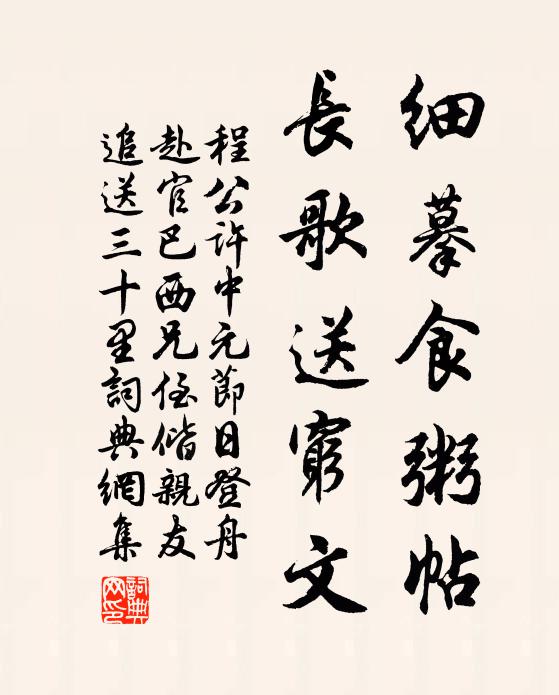 細摹食粥帖
長歌送窮文
程公許中元節日登舟
赴官巴西兄侄偕親友
追送三十里詞典網集
詞典
网印